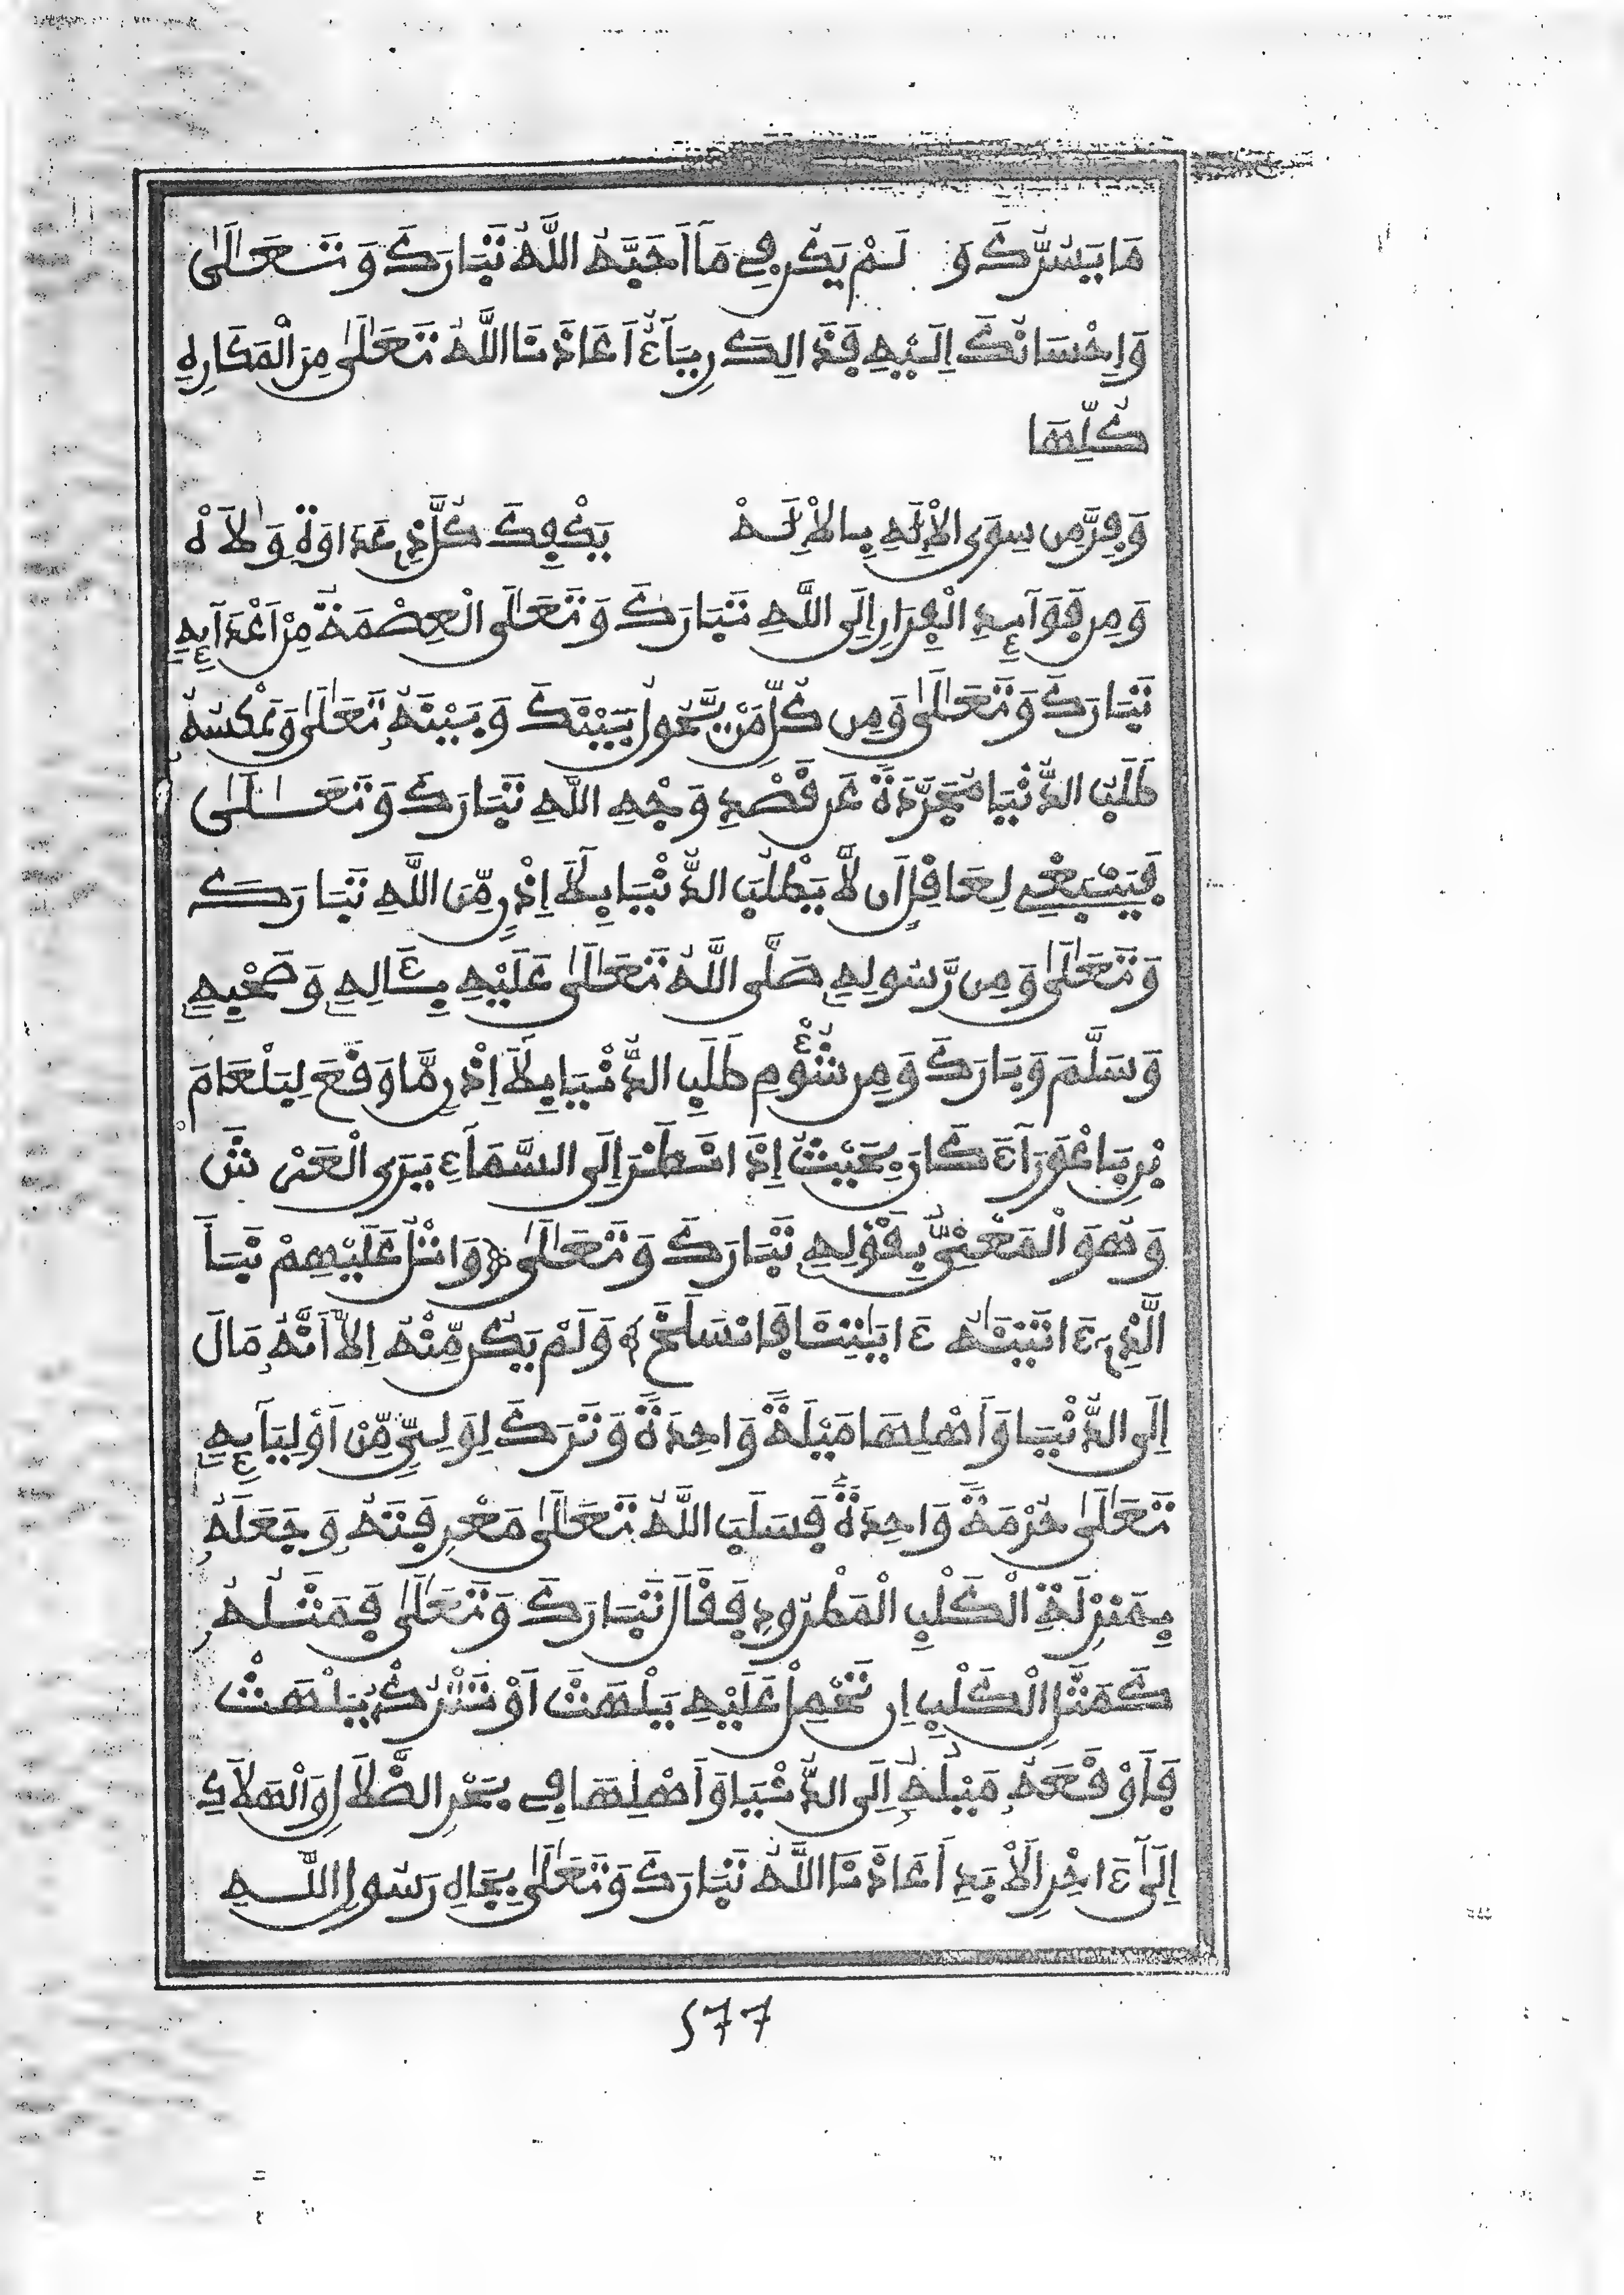 مَا يَسُرُّكَ وَ لَمْ يَكُن فِي مَآ أَحَبَّهُ اللَّهُ تَبَارَكَ وَتَعَالَىٰ
وَإِحْسَانُكَ إِلَيْهِ فَذَالِكَ رِيَآءٌ أَعَاذَنَا اللَّهُ تَعَالَىٰ مِنَ الْمَكَارِهِ
كُلِّهَا
وَفِرَّ مِن سِوَى الْإِلَٰهِ بِالْإِلَٰهْ يَكْفِكَ كُلَّ ذِي عَدَاوَةٍ وَلَاهْ
وَمِن فَوَآئِدِ الْفِرَارِ إِلَى اللَّهِ تَبَارَكَ وَتَعَالَى الْعِصْمَةُ مِنْ أَعْدَآئِهِ
تَبَارَكَ وَتَعَالَىٰ وَمِن كُلِّ مَنْ يَّحُولُ بَيْنَكَ وَبَيْنَهُ تَعَالَىٰ وَعَكْسُهُ
طَلَبُ الدُّنْيَا مُجَرَّدَةً عَن قَصْدِ وَجْهِ اللَّهِ تَبَارَكَ وَتَعَالَىٰ
فَيَنْبَغِي لِعَاقِلٍ أَن لَّا يَطْلُبَ الدُّنْيَا بِلَآ إِذْنٍ مِّنَ اللَّهِ تَبَارَكَ
وَتَعَالَىٰ وَمِن رَّسُولِهِ صَلَّى اللَّهُ تَعَالَىٰ عَلَيْهِ بِـَٔالِهِ وَصَحْبِهِ
وَسَلَّمَ وَبَارَكَ وَمِن شُؤْمِ طَلَبِ الدُّنْيَا بِلَآ إِذْنٍ مَّا وَقَعَ لِبَلْعَامَ
بْنِ بَاعُورَآءَ كَانَ بِحَيْثُ إِذَا نَظَرَ إِلَى السَّمَآءِ يَرَى الْعَرْشَ
وَهُوَ الْمَعْنِيُّ بِقَوْلِهِ تَبَارَكَ وَتَعَالَىٰ ﴿وَاتْلُ عَلَيْهِمْ نَبَأَ
الَّذِي ءَاتَيْنَٰهُ ءَايَٰتِنَا فَانسَلَخَ﴾ وَلَمْ يَكُن مِّنْهُ إِلَّآ أَنَّهُ مَالَ
إِلَى الدُّنْيَا وَأَهْلِهَا مَيْلَةً وَاحِدَةً وَتَرَكَ لِوَلِيٍّ مِّنْ أَوْلِيَآئِهِ
تَعَالَىٰ حُرْمَةً وَاحِدَةً فَسَلَبَ اللَّهُ تَعَالَىٰ مَعْرِفَتَهُ وَجَعَلَهُ
بِمَنْزِلَةِ الْكَلْبِ الْمَطْرُودِ فَقَالَ تَبَارَكَ وَتَعَالَىٰ فَمَثَلُهُ
كَمَثَلِ الْكَلْبِ إِن تَحْمِلْ عَلَيْهِ يَلْهَثْ أَوْ تَتْرُكْهُ يَلْهَثْ
فَأَوْقَعَهُ مَيْلُهُ إِلَى الدُّنْيَا وَأَهْلِهَا فِي بَحْرِ الضَّلَالِ وَالْهَلَاكِ
إِلَىٰ ءَاخِرِ الْأَبَدِ أَعَاذَنَا اللَّهُ تَبَارَكَ وَتَعَالَىٰ بِجَاهِ رَسُولِ اللَّهِ
577